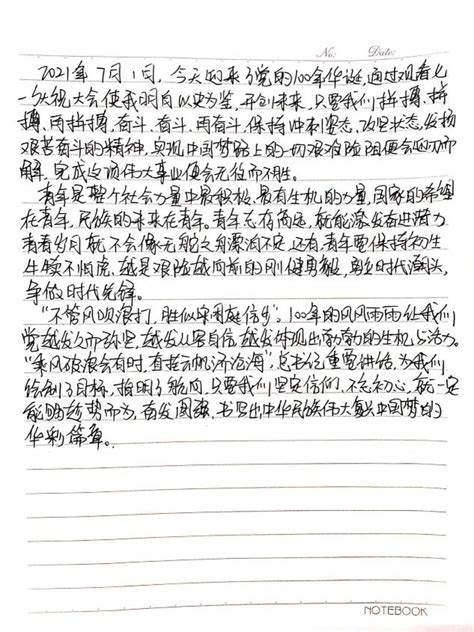 No:          Date:
2021年7月1日,今天迎来了党的100年华诞,通过观看七
一庆祝大会使我明白以史为鉴,开创未来,只要我们拼搏、拼
搏、再拼搏,奋斗、奋斗、再奋斗,保持冲刺姿态,攻坚状态,发扬
艰苦奋斗的精神,实现中国梦路上的一切艰难险阻便会迎刃而
解,完成各项伟大事业便会无位而不胜。
青年是整个社会力量中最积极、最有生机的力量,国家的希望
在青年,民族的未来在青年。青年志存高远,就能激发奋进潜力
青春岁月就不会像无舵之舟漂泊不定,还有,青年要保持初生
牛犊不怕虎、越是艰险越向前的刚健勇毅,勇立时代潮头,
争做时代先锋。
“不管风吹浪打,胜似闲庭信步”。100年的风风雨雨让我们
党越发久而弥坚,越发从容自信,越发体现出勃勃的生机与活力。
“乘风破浪会有时,直挂云帆济沧海”,总书记重要讲话,为我们
绘制了目标,指明了航向,只要我们坚定信仰,不忘初心,就一定
能够趁势而为,奋发图强,书写出中华民族伟大复兴中国梦的
华彩篇章。
NOTEBOOK